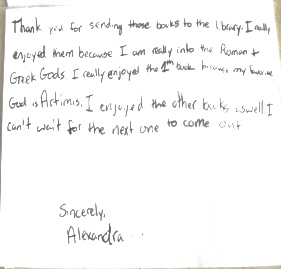 Thank you for sending those books to the library. I really
enjoyed them because I am really into the Roman +
Greek Gods. I really enjoyed the 1th book because my favorite
God is Artimis. I enjoyed the other books aswell. I
can't wait for the next one to come out
Sincerely,
Alexandra